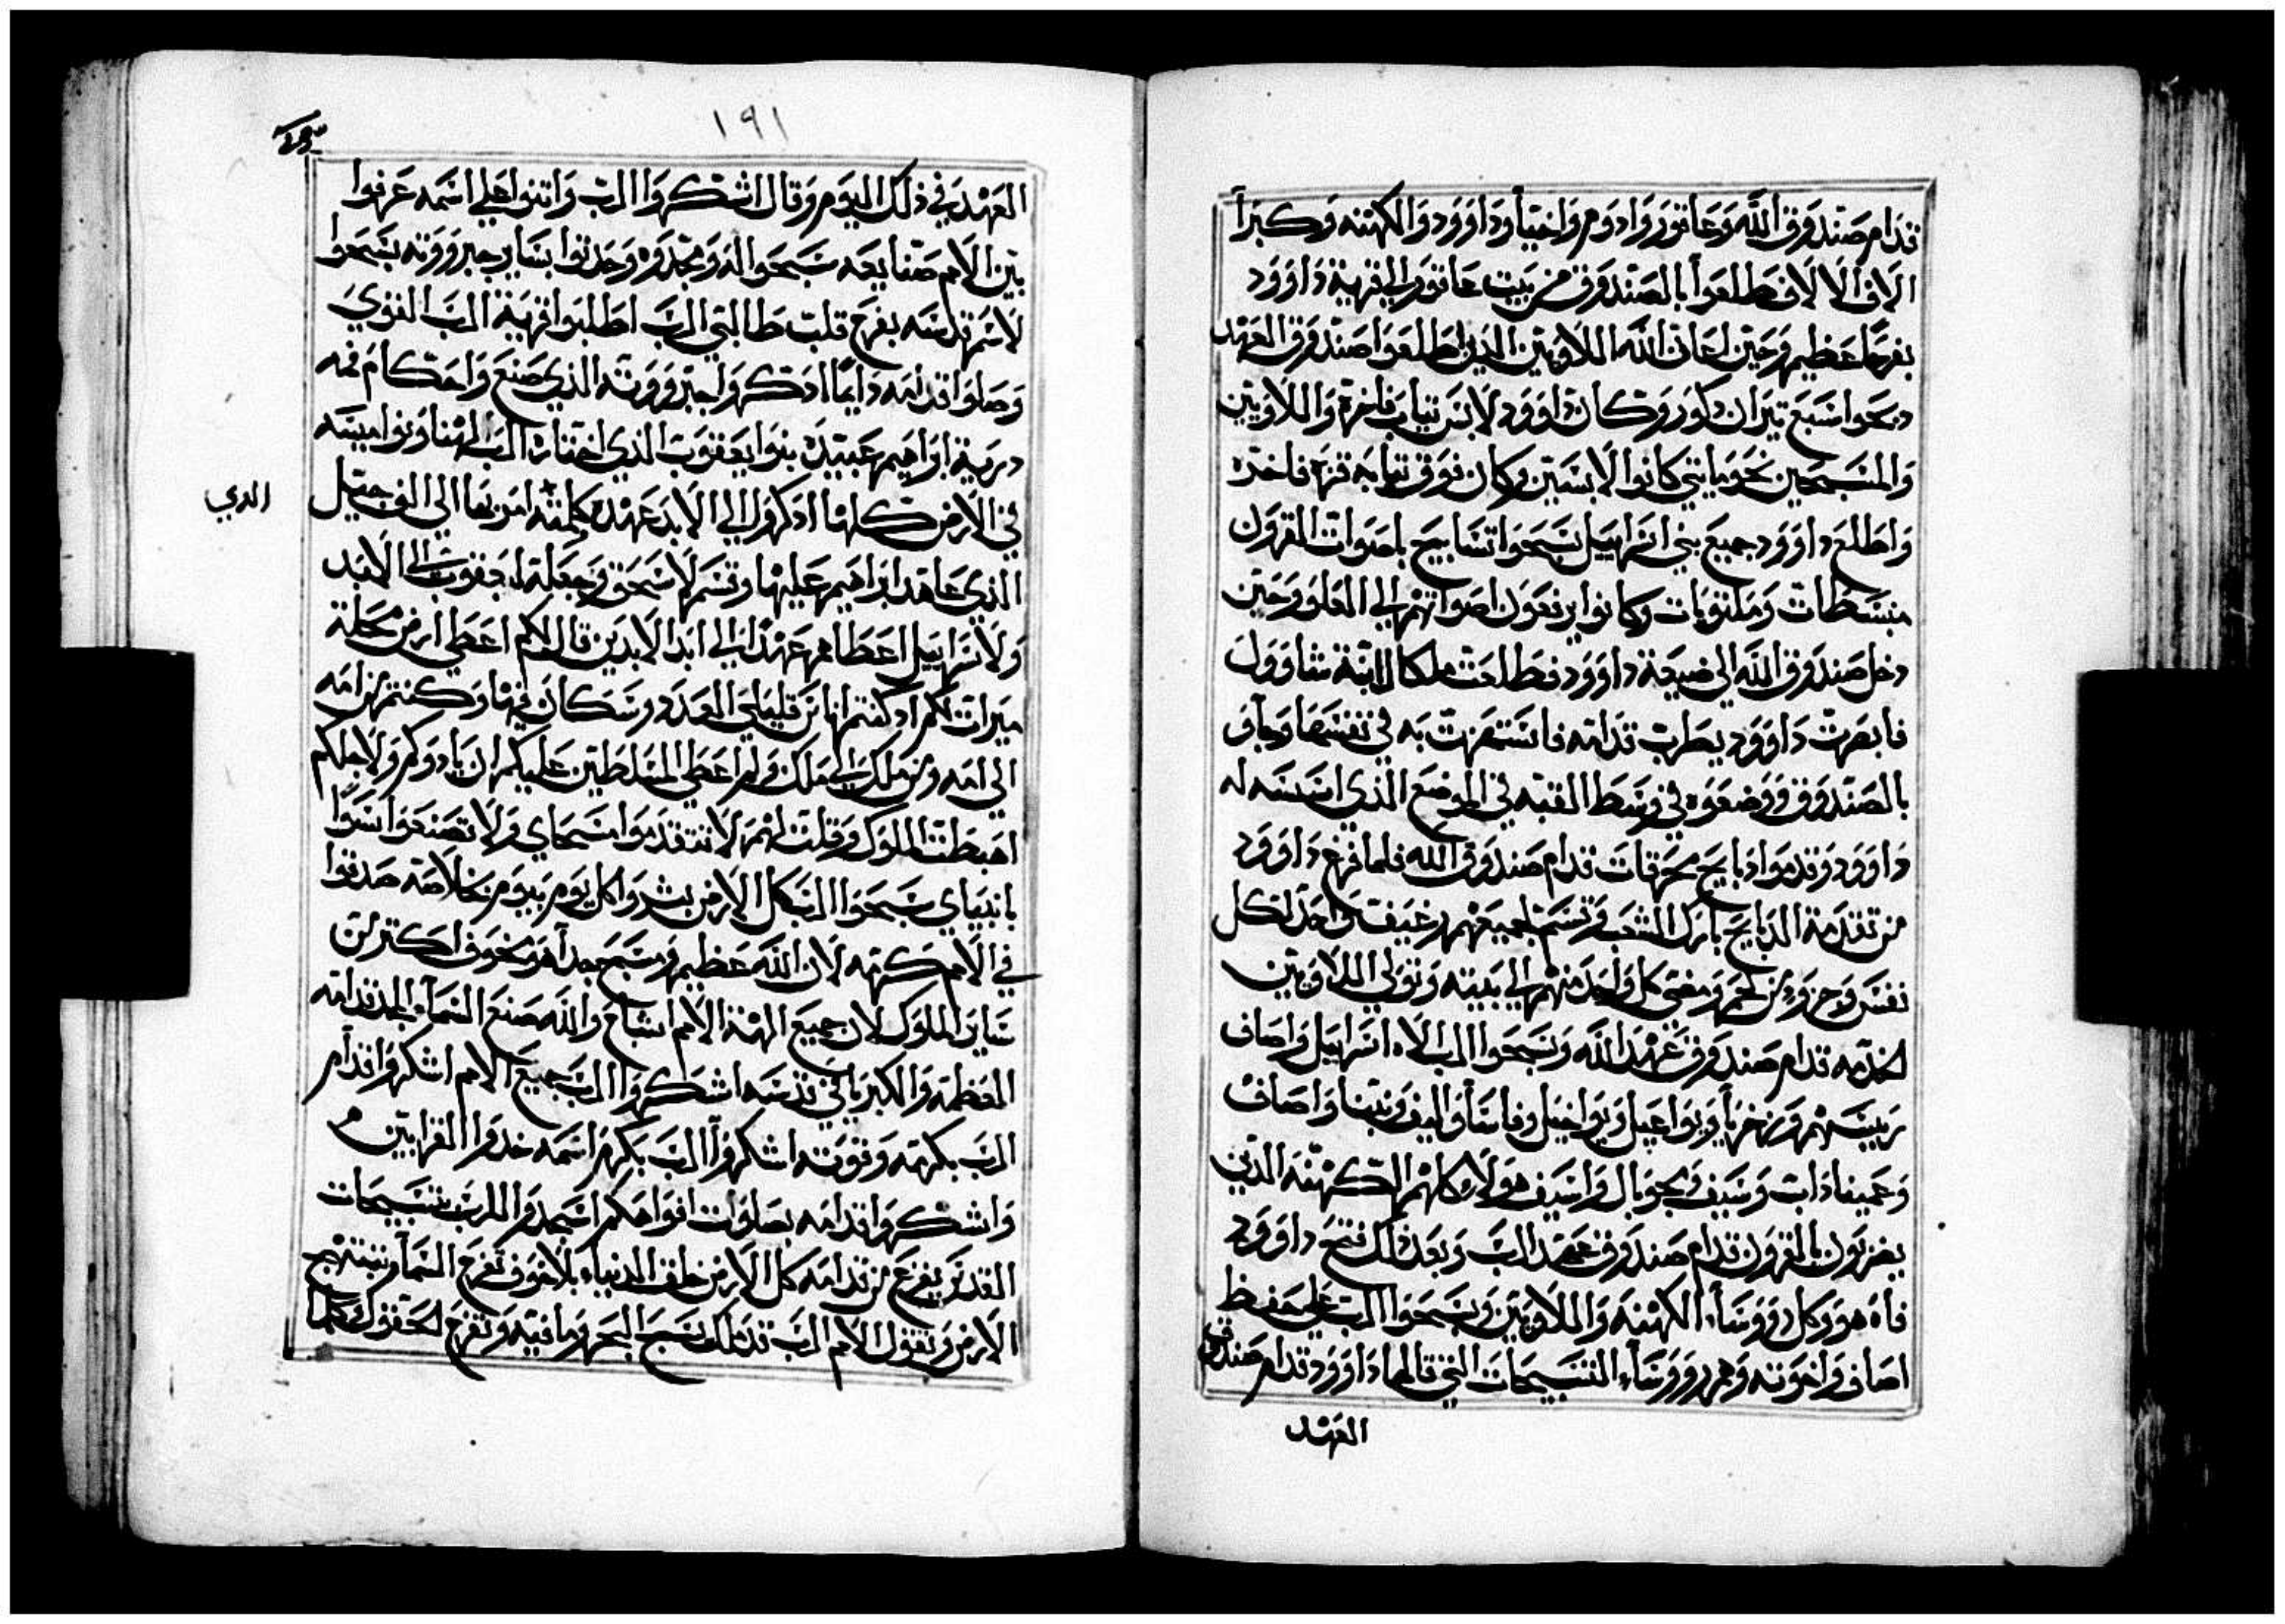 قدام صندوق الله وعاقور وادوم واخيا وداوود والكهنه وكبرا
الاف الالاف طلعوا بالصندوق من بيت عاقور الي قرية داوود
بفرحا عظيم وحين اعان الله اللاويين الذين اطلعوا صندوق العهد
دبحوا سبع تيران دكور وكان داوود لابس تياب فاخرة واللاويين
والمسبحين نحو مايتي كانوا لابسين وكان فوق تيابه قزم فاخره
واطلع داوود جميع بني اسراييل نسبحوا تسابيح باصوات القرون
منبسطات وملتويات وكانوا يرفعون اصواتهم الي العلو وحين
دخل صندوق الله الي ضيعة داوود فطلعت ملكال ابنة شاوول
فابصرت داوود يطرب قدامه فاستهزت به في نفسها وجاوا
بالصندوق ووضعوه في وسط القبه في الموضع الذي اسسه له
داوود وقدموا دبايح محرقات قدام صندوق الله فلما فرغ داوود
من تقدمة الدبايح بارك الشعب وقسم لجميعهم رغيف واحد لكل
نفس وجزو من لحم ومضي كل واحد منهم الي بيته وتولي اللاويين
لخدمه قدام صندوق عهد الله ونسبحوا الرب الاه اسراييل واصاف
رييسهم وزخريا ويواعيل ويواخيل وفاسا واليف وبنيا واصاف
وعمينادات وسيف وبحوبال واسيف هولاء كلهم الكهنه الدين
يضربون بالقرون قدام صندوق عهد الرب وبعد دلك فتح داوود
فاه هو وكل رووساء الكهنه واللاويين ونسبحوا الرب علي حفظ
اصاف واخوته وهم رووساء التسبيحات التي قالها داوود قدام صندوق
العهد
١٩١
العهد في ذلك اليوم وقال اشكروا الرب واتنوا علي اسمه عرفوا
بين الامم صنايعه سبحوا له ومجدوه وحدتوا بساير جبرووته نسبحوا
لاسم قدسه بفرح قلب طالبي الرب اطلبوا قريه الرب القوي
وصلوا قدامه دايما ادكروا جبرووته الذي صنع واحكام فمه
درية ابراهيم عبيده بنوا يعقوب الذي اختاره الرب الهنا ونواميسه
في الارض كلها ادكروا الي الابد عهده كلمته امر بها الي الف جيل
الدي
الذي عاهد ابراهيم عليها وقسم لاسحق وجعلها ليعقوب الي الابد
ولاسراييل اعطاهم عهدا الي ابد الابدين قال لكم اعطي ارض محلة
ميرات لكم اد كنتم اناس قليلي العدد وسكان فيها وكنتم من امه
الي امه ومن ملك الي ملك ولم اعطي المسلطين عليكم ان يادوكم ولاجلكم
اهبطت الملوك وقلت لهم لا تتقدموا مسحاي ولا تصنعوا سوا
بانبياي سبحوا الرب كل الارض بشروا كل يوم بيوم خلاصه صدقوا
في الامم كرمه لان الله عظيم ومسبح جدا هو مخوف اكتر من
ساير الملوك لان جميع الهة الامم اشباح والله صنع السماء المجد قدامه
العظمه والكبريا في قدسه اشكروا الرب جميع الامم اشكروا قدام
الرب بكرمه وقوته اشكروا الرب بكرم اسمه خدوا القرابين
واشكروا قدامه بصلوات افواهكم اسجدوا للرب بتسبيحات
القدس يفزع من قدامه كل الارض خلق الدنياء بلا خوف تفرح السماء وتبتهج
الارض وتقول الامم الرب قد ملك نسبح البحر وما فيه وتفرح الحقول كلها